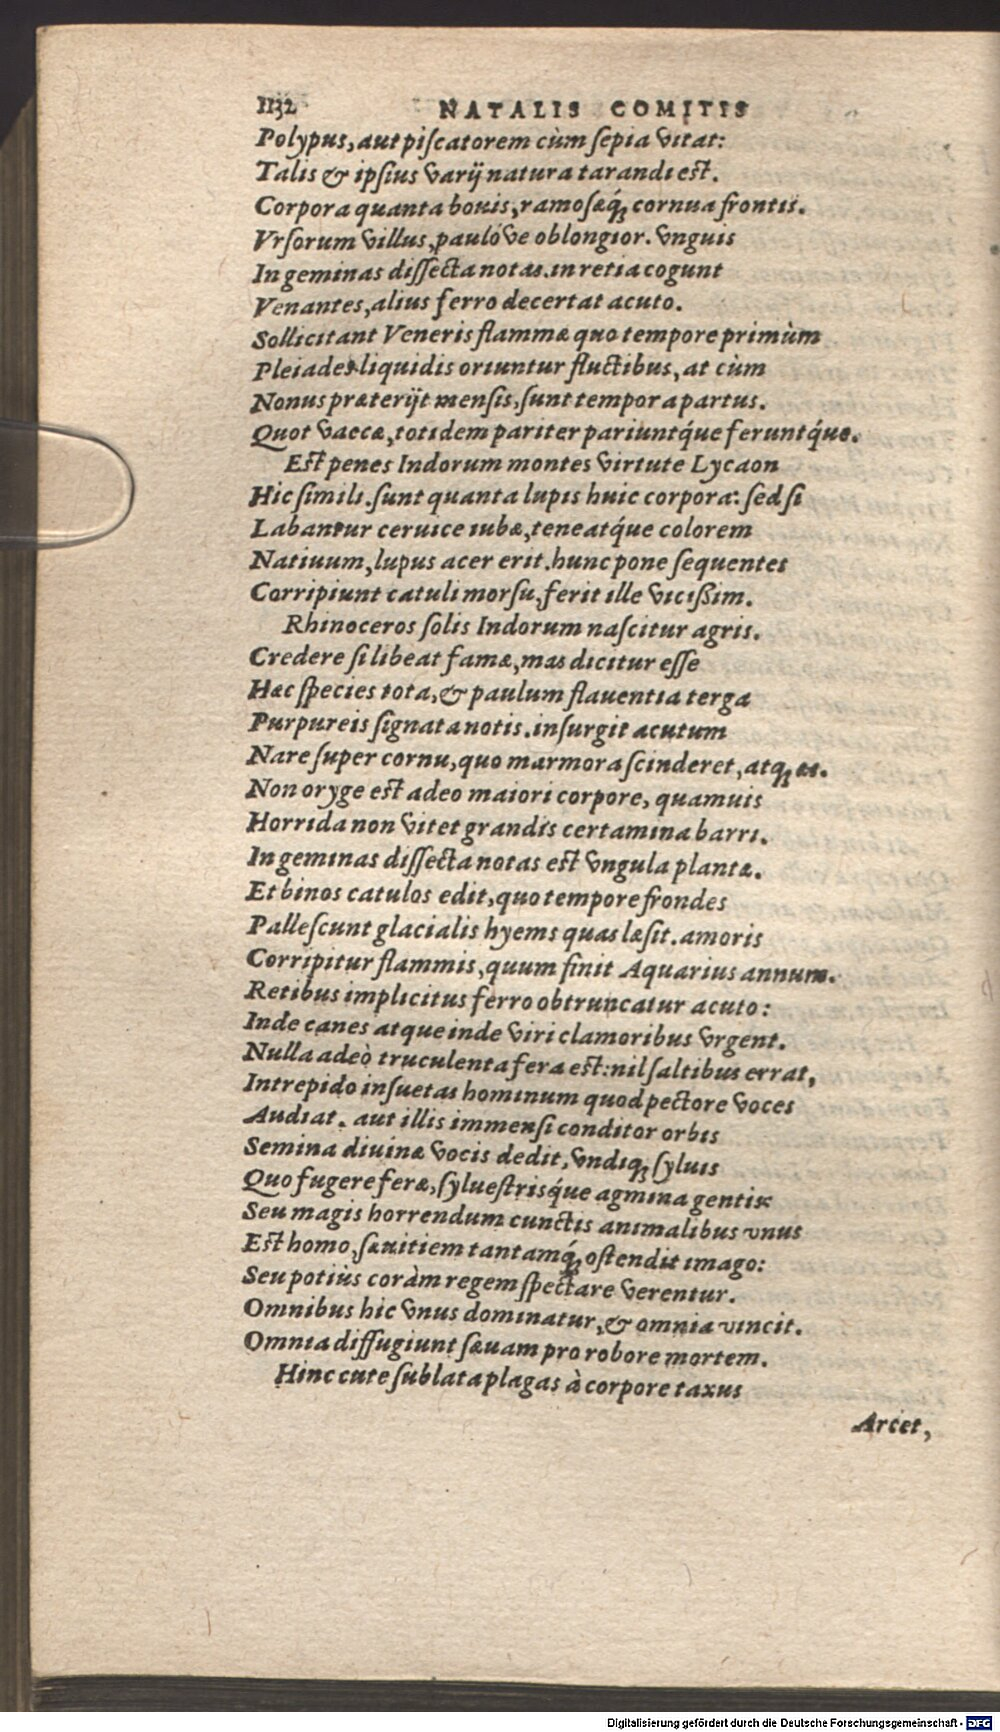 1132 NATALIS COMITIS
Polypus, aut piſcatorem cùm ſepia vitat:
Talis & ipſius varij natura tarandi est.
Corpora quanta bouis, ramoſæq́; cornua frontis.
Vrſorum villus, paulóve oblongior. vnguis
In geminas diſſecta notas. in retia cogunt
Venantes, alius ferro decertat acuto.
Sollicitant Veneris flammæ quo tempore primùm
Pleiades liquidis oriuntur fluctibus, at cùm
Nonus præterijt menſis, ſunt tempora partus.
Quot vaccæ, totidem pariter pariuntq́ue feruntq́ue.
Est penes Indorum montes virtute Lycaon
Hic ſimili. ſunt quanta lupis huic corpora: ſed ſi
Labantur ceruice iubæ, teneatq́ue colorem
Natiuum, lupus acer erit. hunc pone ſequentes
Corripiunt catuli morſu, ferit ille vicißim.
Rhinoceros ſolis Indorum naſcitur agris.
Credere ſi libeat famæ, mas dicitur eſſe
Hæc ſpecies tota, & paulum flauentia terga
Purpureis ſignata notis. inſurgit acutum
Nare ſuper cornu, quo marmora ſcinderet, atq; æs.
Non oryge est adeo maiori corpore, quamuis
Horrida non vitet grandis certamina barri.
In geminas diſſecta notas est vngula plantæ.
Et binos catulos edit, quo tempore frondes
Palleſcunt glacialis hyems quas læſit. amoris
Corripitur flammis, quum finit Aquarius annum.
Retibus implicitus ferro obtruncatur acuto:
Inde canes atque inde viri clamoribus vrgent.
Nulla adeò truculenta fera est: nil ſaltibus errat,
Intrepido inſuetas hominum quod pectore voces
Audiat. aut illis immenſi conditor orbis
Semina diuinæ vocis dedit, vndiq; ſyluis
Quo fugere feræ, ſylueſtrisq́ue agmina gentis:
Seu magis horrendum cunctis animalibus vnus
Est homo, ſæuitiem tantamq́; oſtendit imago:
Seu potiùs coràm regem ſpectare verentur.
Omnibus hic vnus dominatur, & omnia vincit.
Omnia diffugiunt ſæuam pro robore mortem.
Hinc cute ſublata plagas à corpore taxus
Arcet,
Digitalisierung gefördert durch die Deutsche Forschungsgemeinschaft - DFG